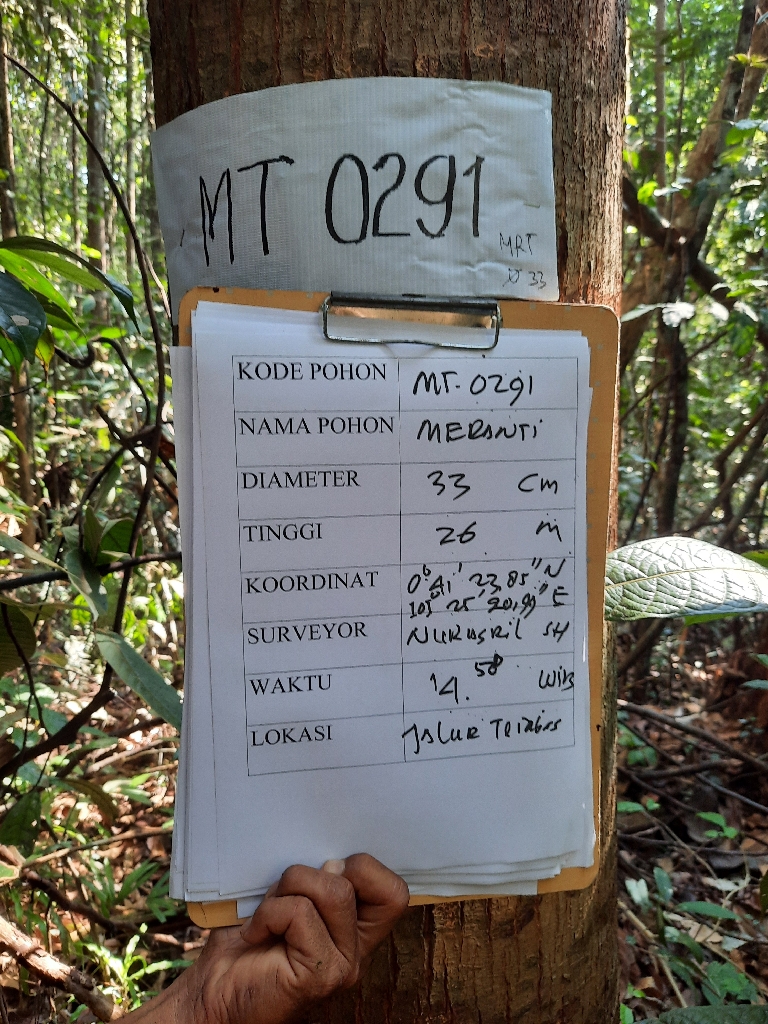 MT 0291
MRT
Ø 33
KODE POHON MT. 0291
NAMA POHON MERANTI
DIAMETER 33 Cm
TINGGI 26 m
KOORDINAT 0° 41' 23,85" N
103° 25' 20,99" E
SURVEYOR NURASRIL SH
WAKTU 14.58 WIB
LOKASI JALUR